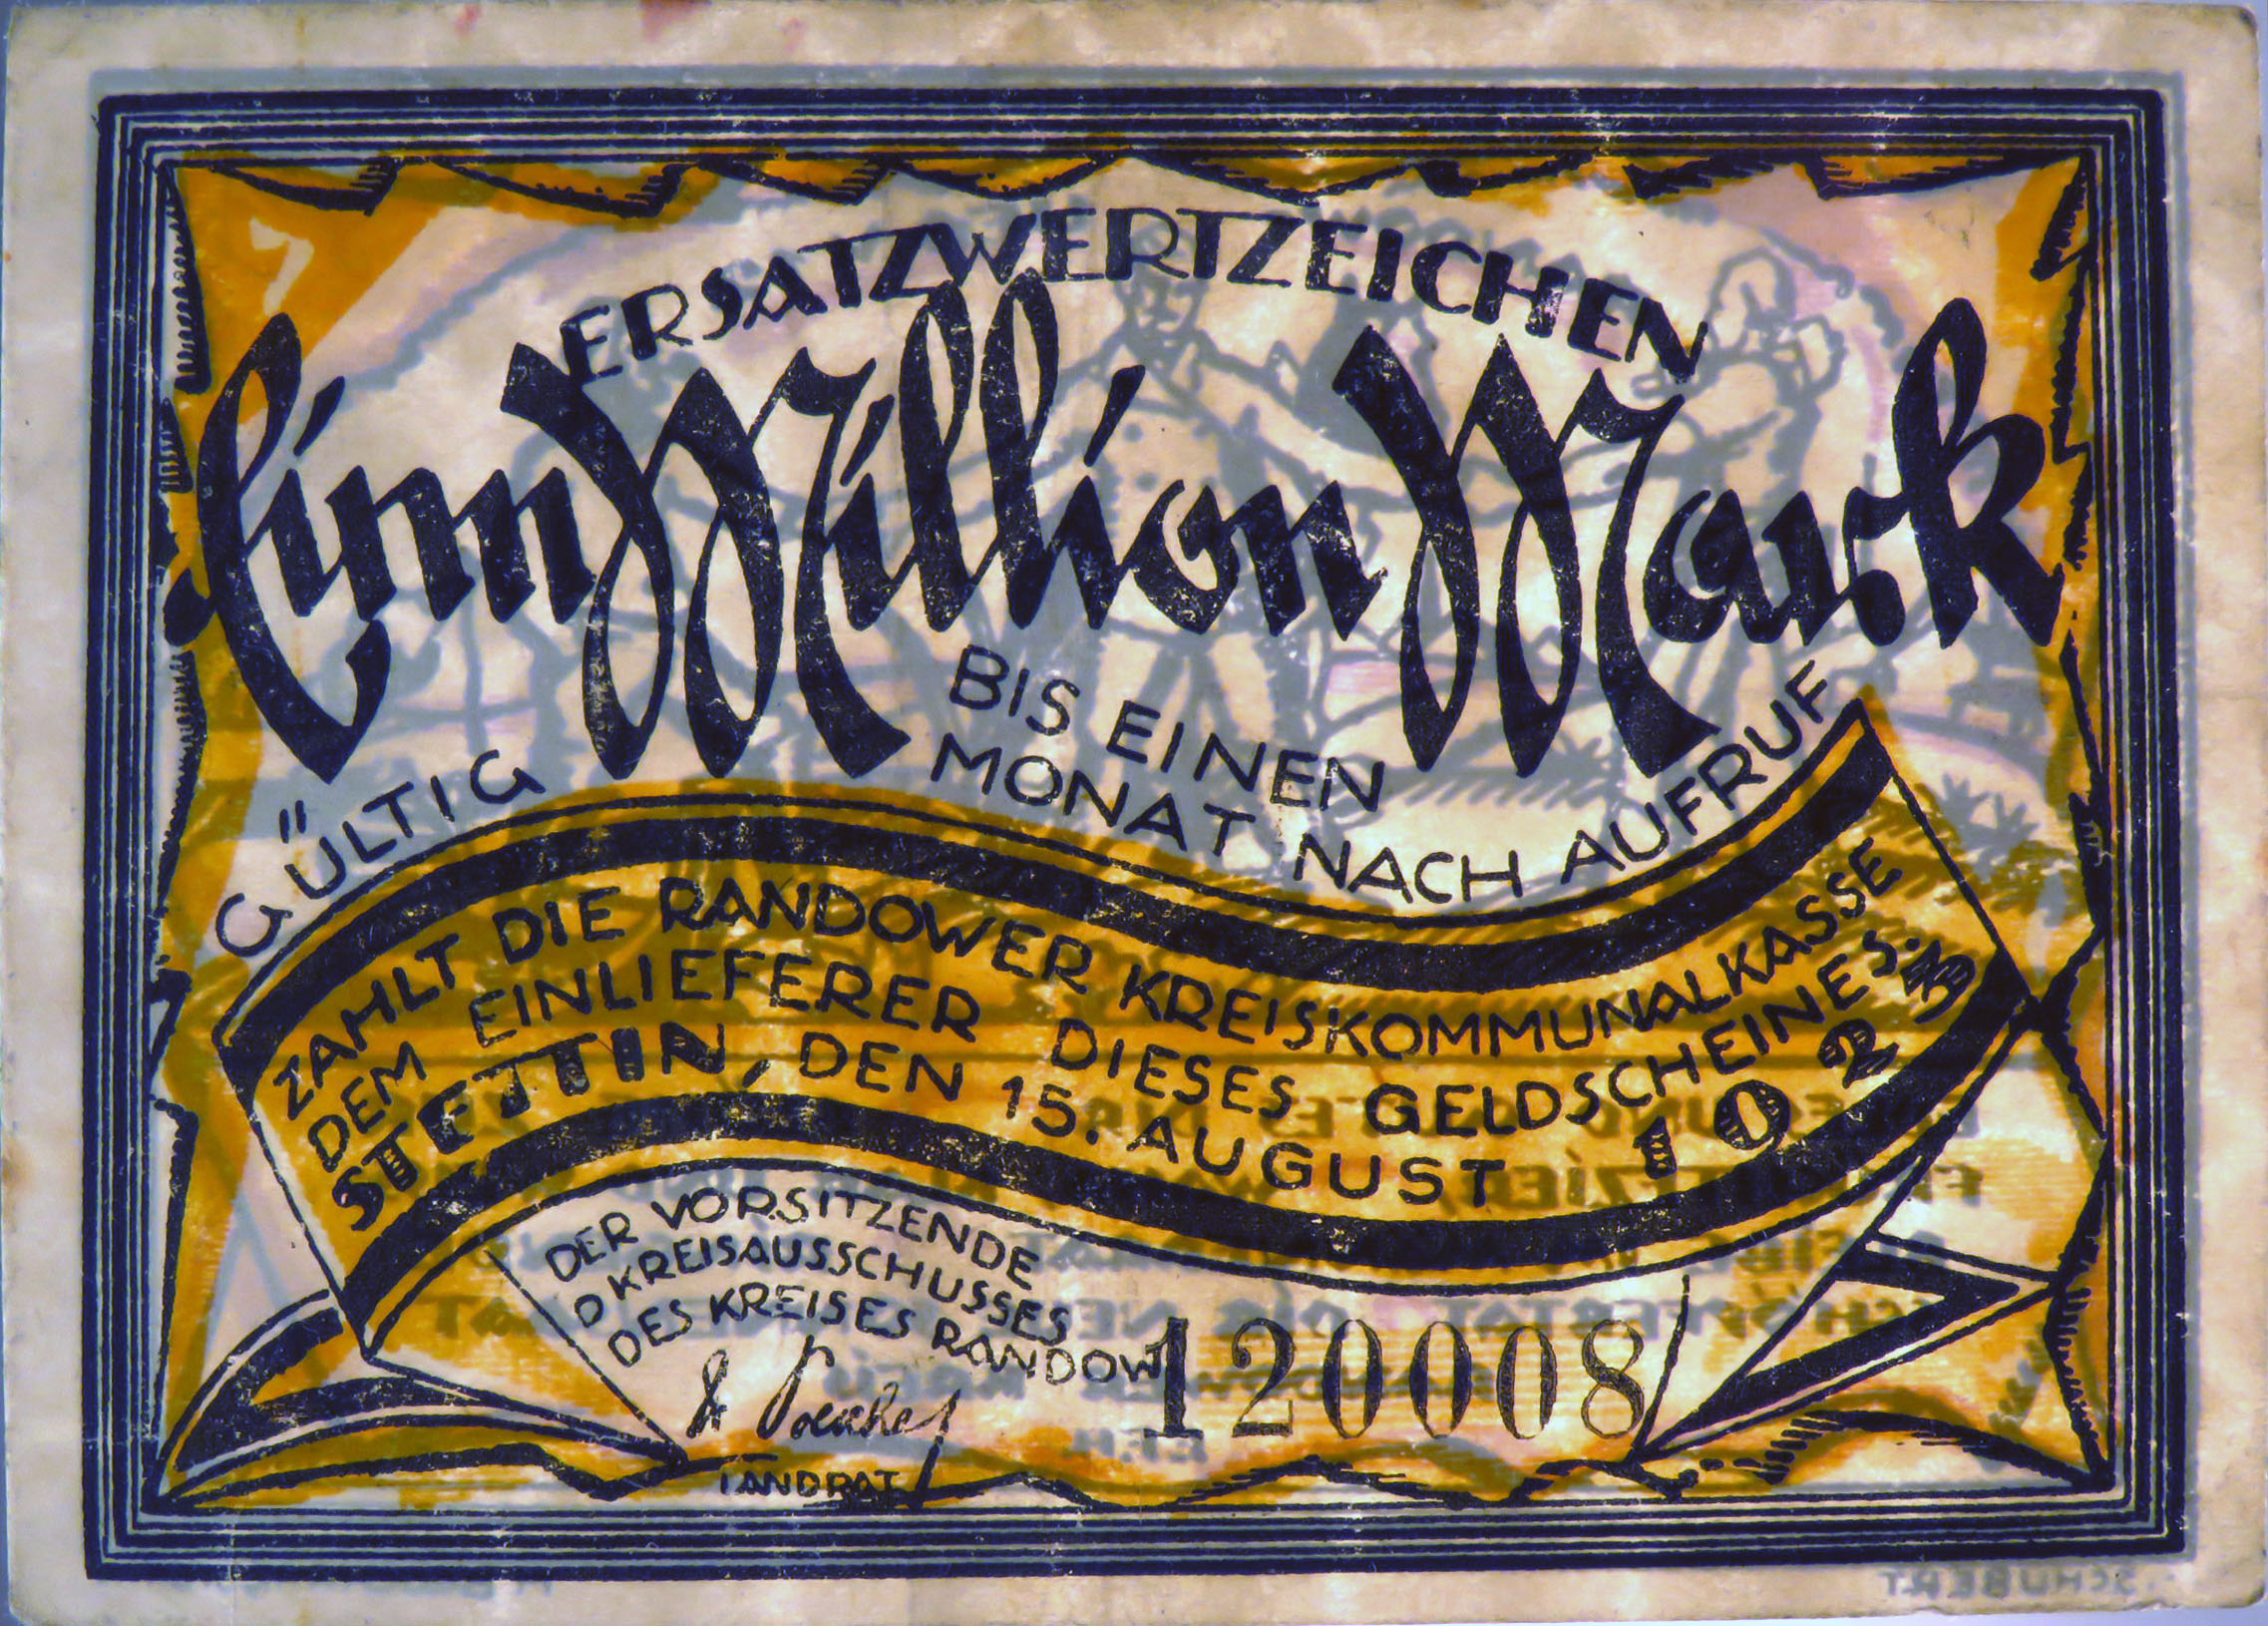 ERSATZWERTZEICHEN
Einn Million Mark
GÜLTIG BIS EINEN
MONAT NACH AUFRUF
ZAHLT DIE RANDOWER KREISKOMMUNALKASSE
DEM EINLIEFERER DIESES GELDSCHEINES.
STETTIN, DEN 15. AUGUST 1923
DER VORSITZENDE
D KREISAUSSCHUSSES
DES KREISES RANDOW
120008
LANDRAT
SCHUBERT